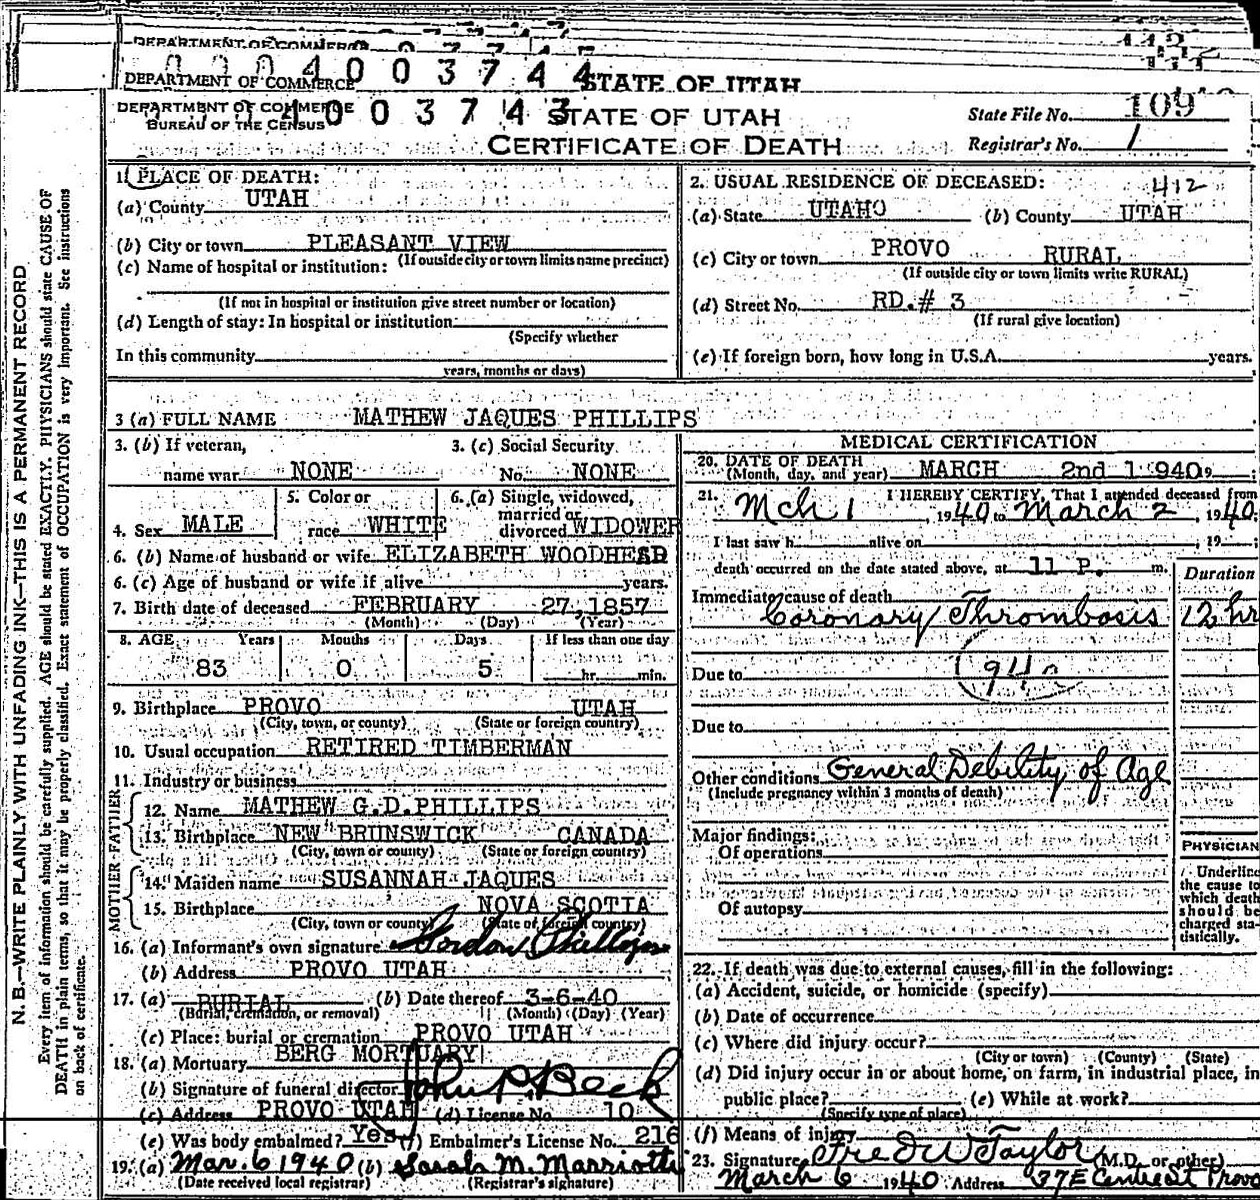 DEPARTMENT OF COMMERCE
DEPARTMENT OF COMMERCE 0 0 4 0 0 3 7 4 4 STATE OF UTAH
DEPARTMENT OF COMMERCE 4 0 0 3 7 4 3 STATE OF UTAH State File No. 109
BUREAU OF THE CENSUS CERTIFICATE OF DEATH Registrar's No. 1
N. B.—WRITE PLAINLY WITH UNFADING INK—THIS IS A PERMANENT RECORD
Every item of information should be carefully supplied. AGE should be stated EXACTLY. PHYSICIANS should state CAUSE OF
DEATH in plain terms, so that it may be properly classified. Exact statement of OCCUPATION is very important. See instructions
on back of certificate.
1. PLACE OF DEATH:
(a) County UTAH
(b) City or town PLEASANT VIEW
(If outside city or town limits name precinct)
(c) Name of hospital or institution:
(If not in hospital or institution give street number or location)
(d) Length of stay: In hospital or institution
(Specify whether
In this community
years, months or days)
2. USUAL RESIDENCE OF DECEASED: 412
(a) State UTAHO (b) County UTAH
(c) City or town PROVO RURAL
(If outside city or town limits write RURAL)
(d) Street No. RD.# 3
(If rural give location)
(e) If foreign born, how long in U.S.A. years.
3 (a) FULL NAME MATHEW JAQUES PHILLIPS
3. (b) If veteran, 3. (c) Social Security
name war NONE No. NONE
5. Color or 6. (a) Single, widowed,
married or
4. Sex MALE race WHITE divorced WIDOWER
6. (b) Name of husband or wife ELIZABETH WOODHEAD
6. (c) Age of husband or wife if alive years.
7. Birth date of deceased FEBRUARY 27, 1857
(Month) (Day) (Year)
8. AGE Years Months Days If less than one day
83 0 5 hr. min.
9. Birthplace PROVO UTAH
(City, town, or county) (State or foreign country)
10. Usual occupation RETIRED TIMBERMAN
11. Industry or business
FATHER
12. Name MATHEW G.D.PHILLIPS
13. Birthplace NEW BRUNSWICK CANADA
(City, town or county) (State or foreign country)
MOTHER
14. Maiden name SUSANNAH JAQUES
15. Birthplace NOVA SCOTIA
(City, town or county) (State or foreign country)
16. (a) Informant's own signature Gordon Phillips
(b) Address PROVO UTAH
17. (a) BURIAL (b) Date thereof 3-6-40
(Burial, cremation, or removal) (Month) (Day) (Year)
(c) Place: burial or cremation PROVO UTAH
18. (a) Mortuary BERG MORTUARY
(b) Signature of funeral director John P. Beck
(c) Address PROVO UTAH (d) License No. 10
(e) Was body embalmed? Yes (f) Embalmer's License No. 216
19. (a) Mar. 6 1940 (b) Sarah M. Marriott
(Date received local registrar) (Registrar's signature)
MEDICAL CERTIFICATION
20. DATE OF DEATH
(Month, day, and year) MARCH 2nd 1940
21. I HEREBY CERTIFY, That I attended deceased from
Mch 1, 1940 to March 2, 1940;
I last saw h alive on , 19 ;
death occurred on the date stated above, at 11 P. m.
Duration
Immediate cause of death
Coronary Thrombosis 12 hr
Due to 94
Due to
Other conditions General Debility of Age
(Include pregnancy within 3 months of death)
Major findings:
Of operations
Of autopsy
PHYSICIAN
Underline
the cause to
which death
should be
charged sta-
tistically.
22. If death was due to external causes, fill in the following:
(a) Accident, suicide, or homicide (specify)
(b) Date of occurrence
(c) Where did injury occur?
(City or town) (County) (State)
(d) Did injury occur in or about home, on farm, in industrial place, in
public place? (e) While at work?
(Specify type of place)
(f) Means of injury
23. Signature Fred W Taylor (M.D. or other)
March 6 1940 Address 37 E Center St Provo